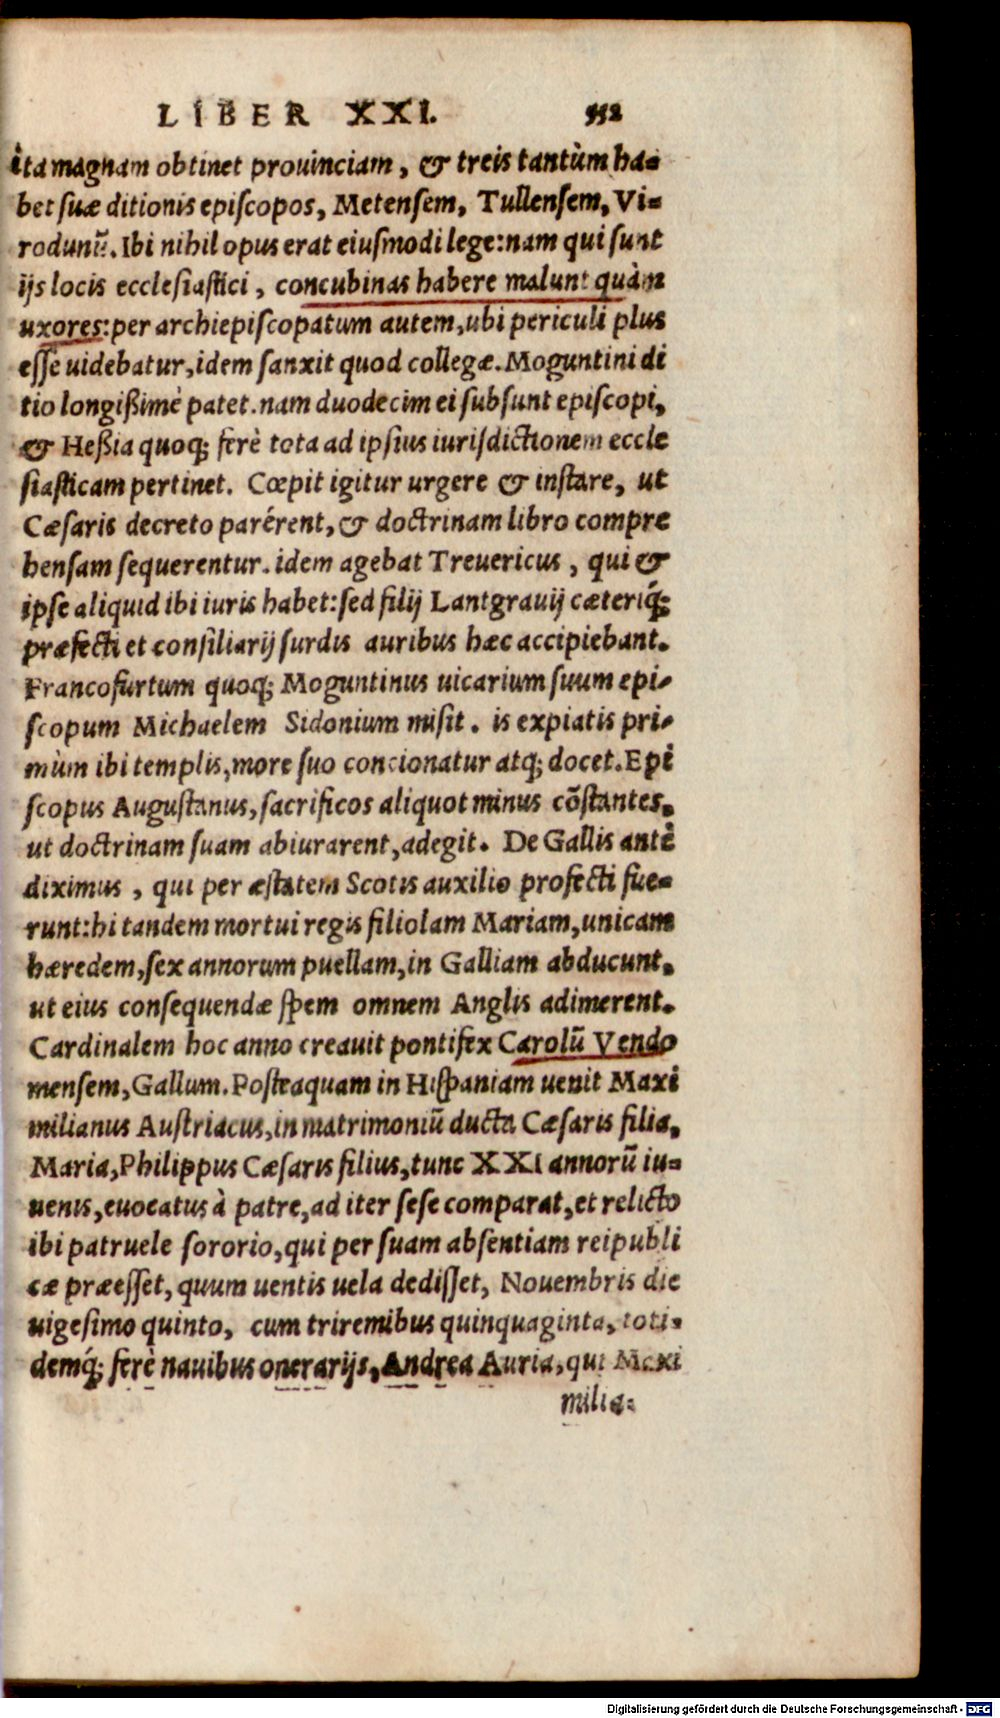 LIBER XXI. 552
ita magnam obtinet prouinciam, & treis tantùm ha-
bet suæ ditionis episcopos, Metensem, Tullensem, Vi-
rodunũ. Ibi nihil opus erat eiusmodi lege: nam qui sunt
ijs locis ecclesiastici, concubinas habere malunt quàm
uxores: per archiepiscopatum autem, ubi periculi plus
esse uidebatur, idem sanxit quod collegæ. Moguntini di
tio longißimè patet. nam duodecim ei subsunt episcopi,
& Heßia quoq; ferè tota ad ipsius iurisdictionem eccle
siasticam pertinet. Cœpit igitur urgere & instare, ut
Cæsaris decreto parérent, & doctrinam libro compre
hensam sequerentur. idem agebat Treuericus, qui &
ipse aliquid ibi iuris habet: sed filij Lantgrauij cæteriq́;
præfecti et consiliarij surdis auribus hæc accipiebant.
Francofurtum quoq; Moguntinus uicarium suum epi-
scopum Michaelem Sidonium misit. is expiatis pri-
mùm ibi templis, more suo concionatur atq; docet. Epi
scopus Augustanus, sacrificos aliquot minus cõstantes,
ut doctrinam suam abiurarent, adegit. De Gallis antè
diximus, qui per æstatem Scotis auxilio profecti fue-
runt: hi tandem mortui regis filiolam Mariam, unicam
hæredem, sex annorum puellam, in Galliam abducunt,
ut eius consequendæ spem omnem Anglis adimerent.
Cardinalem hoc anno creauit pontifex Carolũ Vendo
mensem, Gallum. Posteaquam in Hispaniam uenit Maxi
milianus Austriacus, in matrimoniũ ducta Cæsaris filia,
Maria, Philippus Cæsaris filius, tunc XXI annorũ iu-
uenis, euocatus à patre, ad iter sese comparat, et relicto
ibi patruele sororio, qui per suam absentiam reipubli
cæ præesset, quum uentis uela dedisset, Nouembris die
uigesimo quinto, cum triremibus quinquaginta, toti-
demq́; ferè nauibus onerarijs, Andrea Auria, qui Maxi
milia-
Digitalisierung gefördert durch die Deutsche Forschungsgemeinschaft - DFG